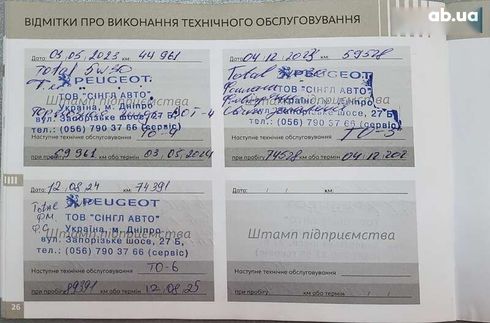 ab.ua
ВІДМІТКИ ПРО ВИКОНАННЯ ТЕХНІЧНОГО ОБСЛУГОВУВАННЯ
Дата: 03.05.2023 км: 44 961
Total 5w30
PEUGEOT
ТОВ "СІНГЛ АВТО"
Україна, м. Дніпро
вул. Запорізьке шосе, 27 Б
тел.: (056) 790 37 66 (сервіс)
Наступне технічне обслуговування
при пробігу 59 961 км або термін 03.05.2024
Дата: 04.12.2023 59578
Total
PEUGEOT
ТОВ "СІНГЛ АВТО"
Україна, м. Дніпро
Запорізьке шосе, 27 Б
тел.: (056) 790 37 66 (сервіс)
Наступне технічне обслуговування ТО-5
при пробігу 74578 км або термін 04.12.202
Дата: 12.08.24 км: 74391
Total
PEUGEOT
Ф.М.
ТОВ "СІНГЛ АВТО"
Ф.С.
Україна, м. Дніпро
вул. Запорізьке шосе, 27 Б,
тел.: (056) 790 37 66 (сервіс)
Наступне технічне обслуговування ТО-6
при пробігу 89391 км або термін 12.08.25
Дата: км:
Штамп підприємства
Наступне технічне обслуговування
при пробігу км або термін
26